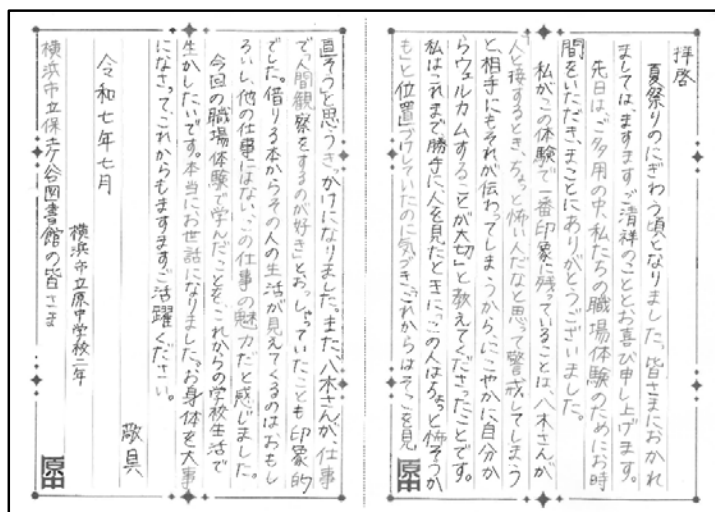 拝啓
夏祭りのにぎわう頃となりました。皆さまにおかれ
ましては、ますますご清祥のこととお喜び申し上げます。
先日は、ご多用の中、私たちの職場体験のためにお時
間をいただき、まことにありがとうございました。
私がこの体験で一番印象に残っていることは、八木さんが
人と接するとき、ちょっと怖い人だなと思って警戒してしまう
と、相手にもそれが伝わってしまうから、にこやかに自分か
らウェルカムすることが大切」と教えてくださったことです。
私はこれまで、勝手に、人を見たときに「この人はちょっと怖そうか
も」と位置づけしていたのに気づき、これからはそこを見
直そうと思うきっかけになりました。また、八木さんが、仕事
で「人間観察をするのが好き」とおっしゃっていたことも印象的
でした。借りる本からその人の生活が見えてくるのはおもし
ろいし、他の仕事にはない、この仕事の魅力だと感じました。
今回の職場体験で学んだことを、これからの学校生活で
生かしたいです。本当にお世話になりました。お身体を大事
になさって、これからもますますご活躍ください。
敬具
令和七年七月
横浜市立原中学校二年
横浜市立保土ケ谷図書館の皆さま
原中
原中